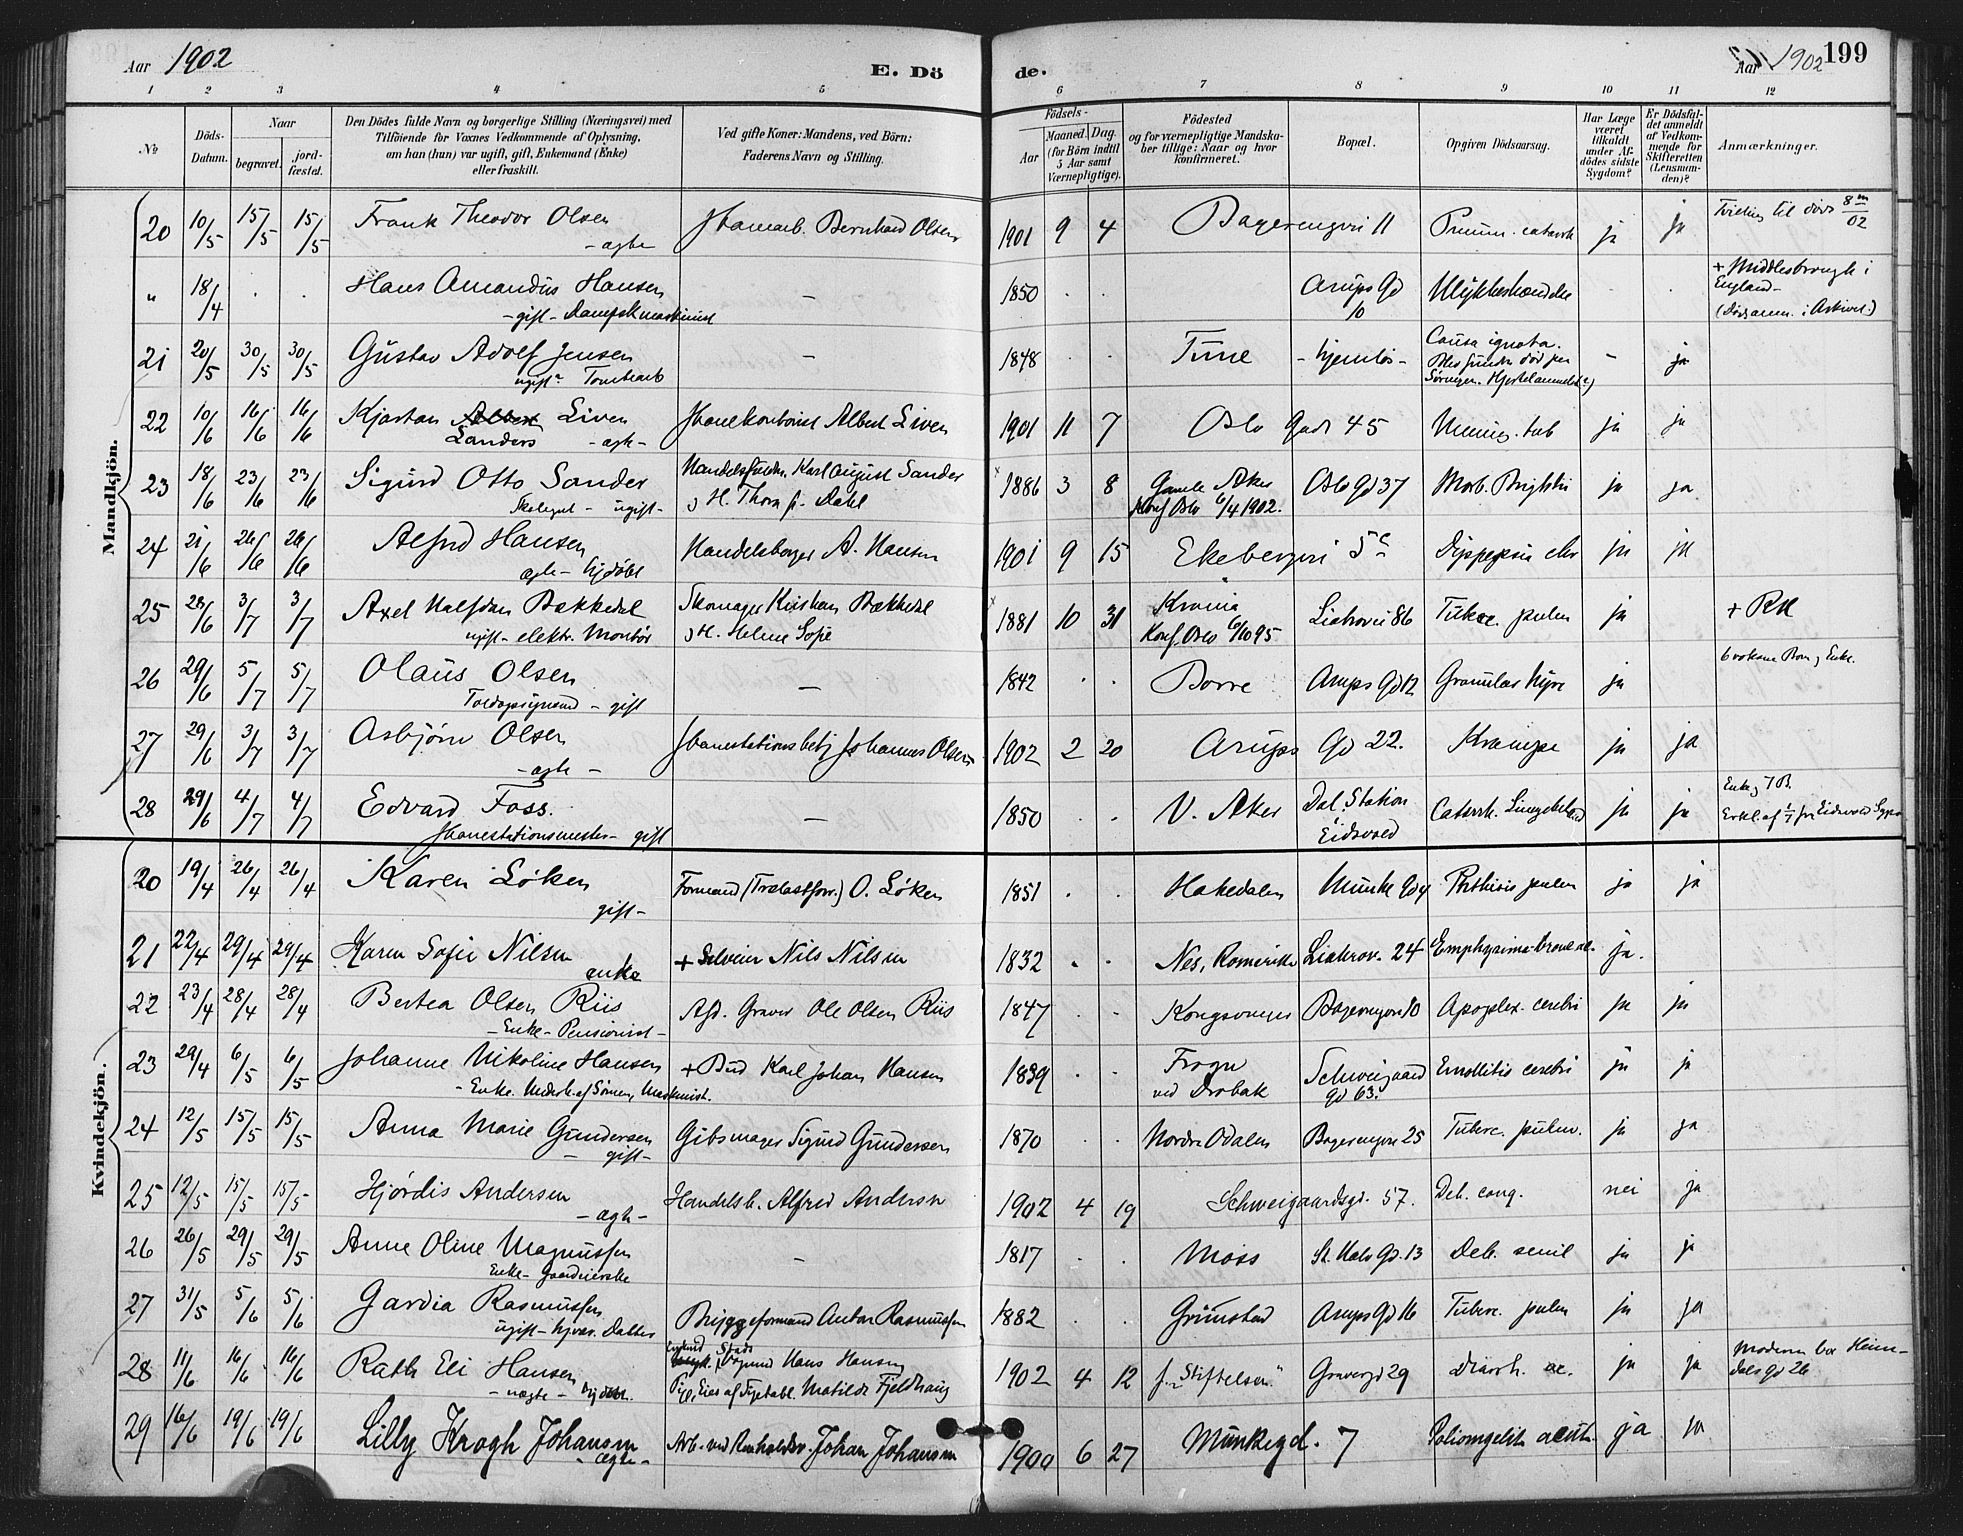 Aar 1902
E. Döde.
Aar 1902
199
1 2 3 4 5 6 7 8 9 10 11 12
No
Döds-Datum.
Naar
begravet.
jordfæstet.
Den Dödes fulde Navn og borgerlige Stilling (Næringsvei) med
Tilföiende for Voxnes Vedkommende af Oplysning,
om han (hun) var ugift, gift, Enkemand (Enke)
eller fraskilt.
Ved gifte Koner: Mandens, ved Börn:
Faderens Navn og Stilling.
Födsels-
Aar
Maaned. Dag.
(for Börn indtil 5 Aar samt Værnepligtige).
Födested
og for værnepligtige Mandskaber tillige: Naar og hvor konfirmeret.
Bopæl.
Opgiven Dödsaarsag.
Har Læge været tilkaldt under Afdödes sidste Sygdom?
Er Dödsfaldet anmeldt af Vedkommende for Skifteretten (Lensmanden)?
Anmærkninger.
Mandkjön.
20 10/5 15/5 15/5 Frank Theodor Olsen Bernhard Olsen 1901 9 4 11 ja ja til döds
- ægte
" 18/4 . . Hans Amandus Hansen — 1850 . . Arups Gd 10 . . + Middlesbrough i England -
- gift -
21 20/5 30/5 30/5 Gustav Adolf Jensen — 1848 . . Tune - hjemlös - Causa ignota. - ja
ugift
22 10/6 16/6 16/6 Kjartan Liven Albert Liven 1901 11 7 Oslo Gade 45 ja ja
Sanders - ægte -
23 18/6 23/6 23/6 Sigurd Otto Sander Karl August Sander 1886 3 8 Gamle Aker Oslo Gd 37 Morb. Brightii ja ja
- ugift - Konf. Oslo 6/4 1902.
24 21/6 26/6 26/6 Alfred Hansen Handelsborger A. Hansen 1901 9 15 Ekebergvei 5 ja ja
ægte - hjdöbt
25 28/6 3/7 3/7 Axel Halfdan Bækkedal Skomager Kristian Bækkedal 1881 10 31 Krania Liabrovei 86 Tuberc. pulm ja + RH
ugift - elektr. Montör Helene Sofie Konf. Oslo 95
26 29/6 5/7 5/7 Olaus Olsen — 1842 . . Borre Arups Gd 12 Granulær Nyre ja 6 voksne Börn Enke.
Toldopsynsmd - gift
27 29/6 3/7 3/7 Asbjörn Olsen Jbanestationsbetj Johannes Olsen 1902 2 20 Arups Gd 22. Krampe ja ja
- ægte -
28 29/6 4/7 4/7 Edvard Foss. — 1850 . . V. Aker Dal Station Eidsvold ja ja Enke 7 B.
Jbanestationsmester - gift
Kvindekjön.
20 19/4 26/4 26/4 Karen Löken Formand (Trælastforr.) O. Löken 1851 . . Hakedalen Munke Gd 4 Phthisis pulm ja ja
gift -
21 22/4 29/4 29/4 Karen Sofie Nilsen + Nils Nilsen 1832 . . Nes, Romerike Liabrov. 24 ja.
enke
22 23/4 28/4 28/4 Bertea Olsen Riis Afd. Graver Ole Olsen Riis 1847 . . Kongsvinger Bogerengvn 10 Apoplex. cerebri ja ja
- Enke - Pensionist -
23 29/4 6/5 6/5 Johanne Nikoline Hansen + Bud Karl Johan Hansen 1839 . . Frogn Schweigaard Gd 63. Emollitio cerebri ja ja
- Enke. Underh. af Sönnen, Maskinist. ved Dröbak
24 12/5 15/5 15/5 Anna Marie Gundersen Gibsmager Sigurd Gundersen 1870 . . Nordre Odalen Bogerengvn 25 Tuberc. pulm. ja ja
- gift -
25 12/5 15/5 15/5 Hjördis Andersen Handelsb. Alfred Andersen 1902 4 19 Schweigaardsgd. 57. Deb. cong. nei ja
- ægte -
26 26/5 29/5 29/5 Anne Oline Magnussen — 1817 . . Moss St. Halv Gd. 13 Deb. senil ja ja
Enke -
27 31/5 5/6 5/6 Gardia Rasmussen Bryggeformand Anton Rasmussen 1882 . . Grimstad Arups Gd 16 Tuberc. pulm ja ja
ugift - hjvær. Datter
28 11/6 16/6 16/6 Rath Eli Hansen Hans Hansen 1902 4 12 f. "Stiftelsen" Gravergd 29 Diarrh. ac. ja ja Moderen bor Heimdals Gd 26
- uægte - Pige, Matilde Fjeldhaug
29 16/6 19/6 19/6 Lilly Krogh Johansen Arb. ved Renholdsv. Johan Johansen 1900 6 27 Munkegd. 7 Poliomyelit acut. ja ja
- ægte -